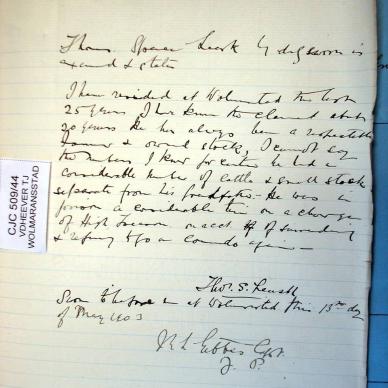 Thomas Spencer Leask duly sworn is
examd & states
I have resided at Wolmarstad the last
25 years I have known the claimant about
20 years He has always been a respectable
farmer & owned stock, I cannot say
the numbers I know for certain he had a
considerable number of cattle & small stock
separate from his grandfather - He was in
prison a considerable time on a charge
of High Treason on acct of surrendering
& refusing to go on Commando again -
Thos. S. Leask
Sworn to before me at Wolmarstad this 13th day
of May 1903
Gibbes Capt.
J. P.
CJC 509/44
VDHEEVER TJ
WOLMARANSSTAD